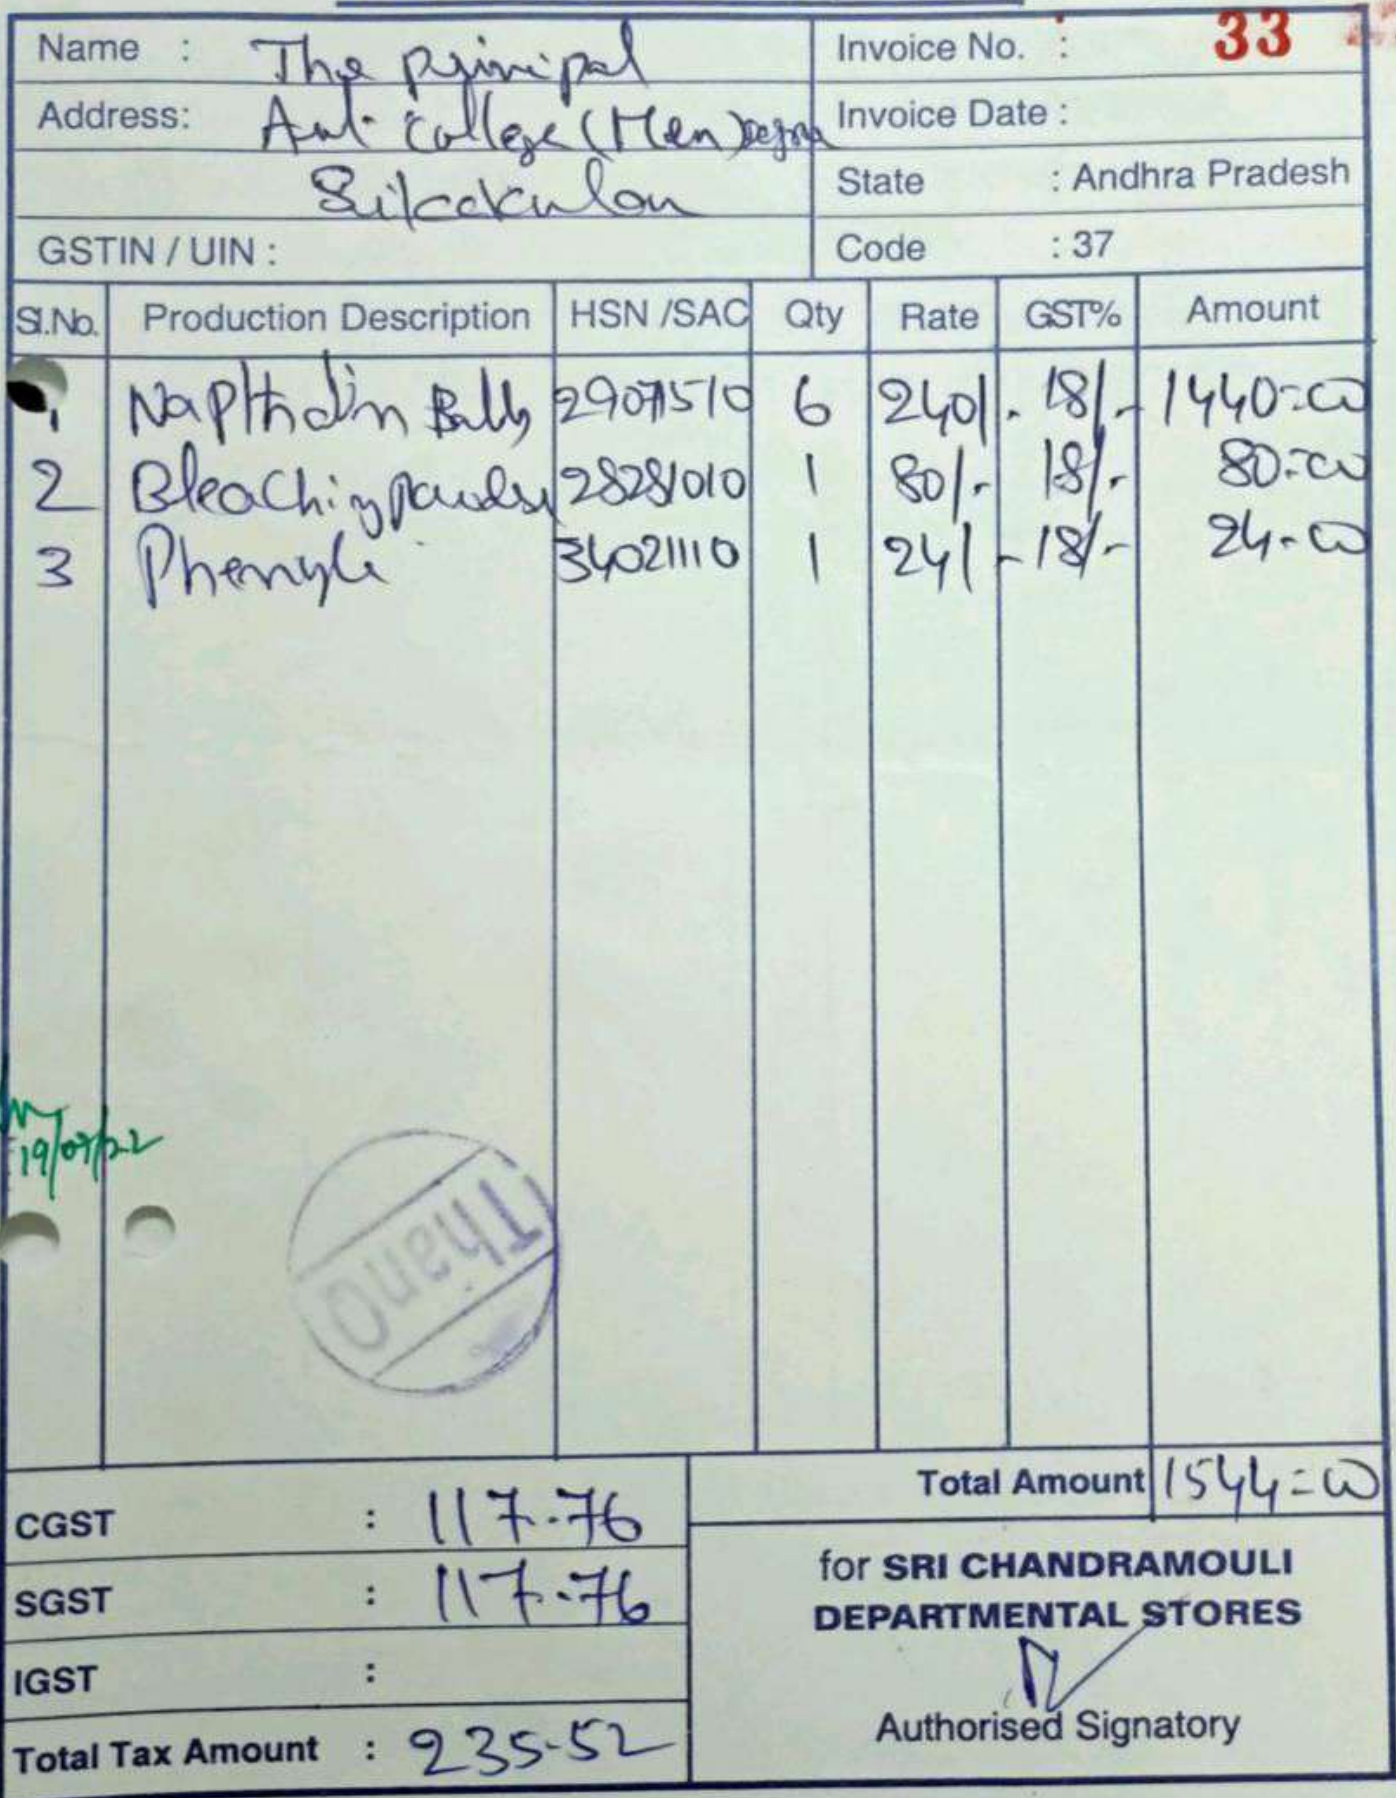 Name : The Principal
Address: Govt. College (Men)
Srikakulam
GSTIN / UIN :
Invoice No. : 33
Invoice Date :
State : Andhra Pradesh
Code : 37
Sl.No. Production Description HSN /SAC Qty Rate GST% Amount
1 Napthalin Balls 29071510 6 240/- 18/- 1440=00
2 Bleaching powder 28281010 1 80/- 18/- 80=00
3 Phenyle 34021110 1 24/- 18/- 24-00
19/07/22
ThanQ
Total Amount 1544=00
CGST : 117-76
SGST : 117-76
IGST :
Total Tax Amount : 235-52
for SRI CHANDRAMOULI
DEPARTMENTAL STORES
Authorised Signatory